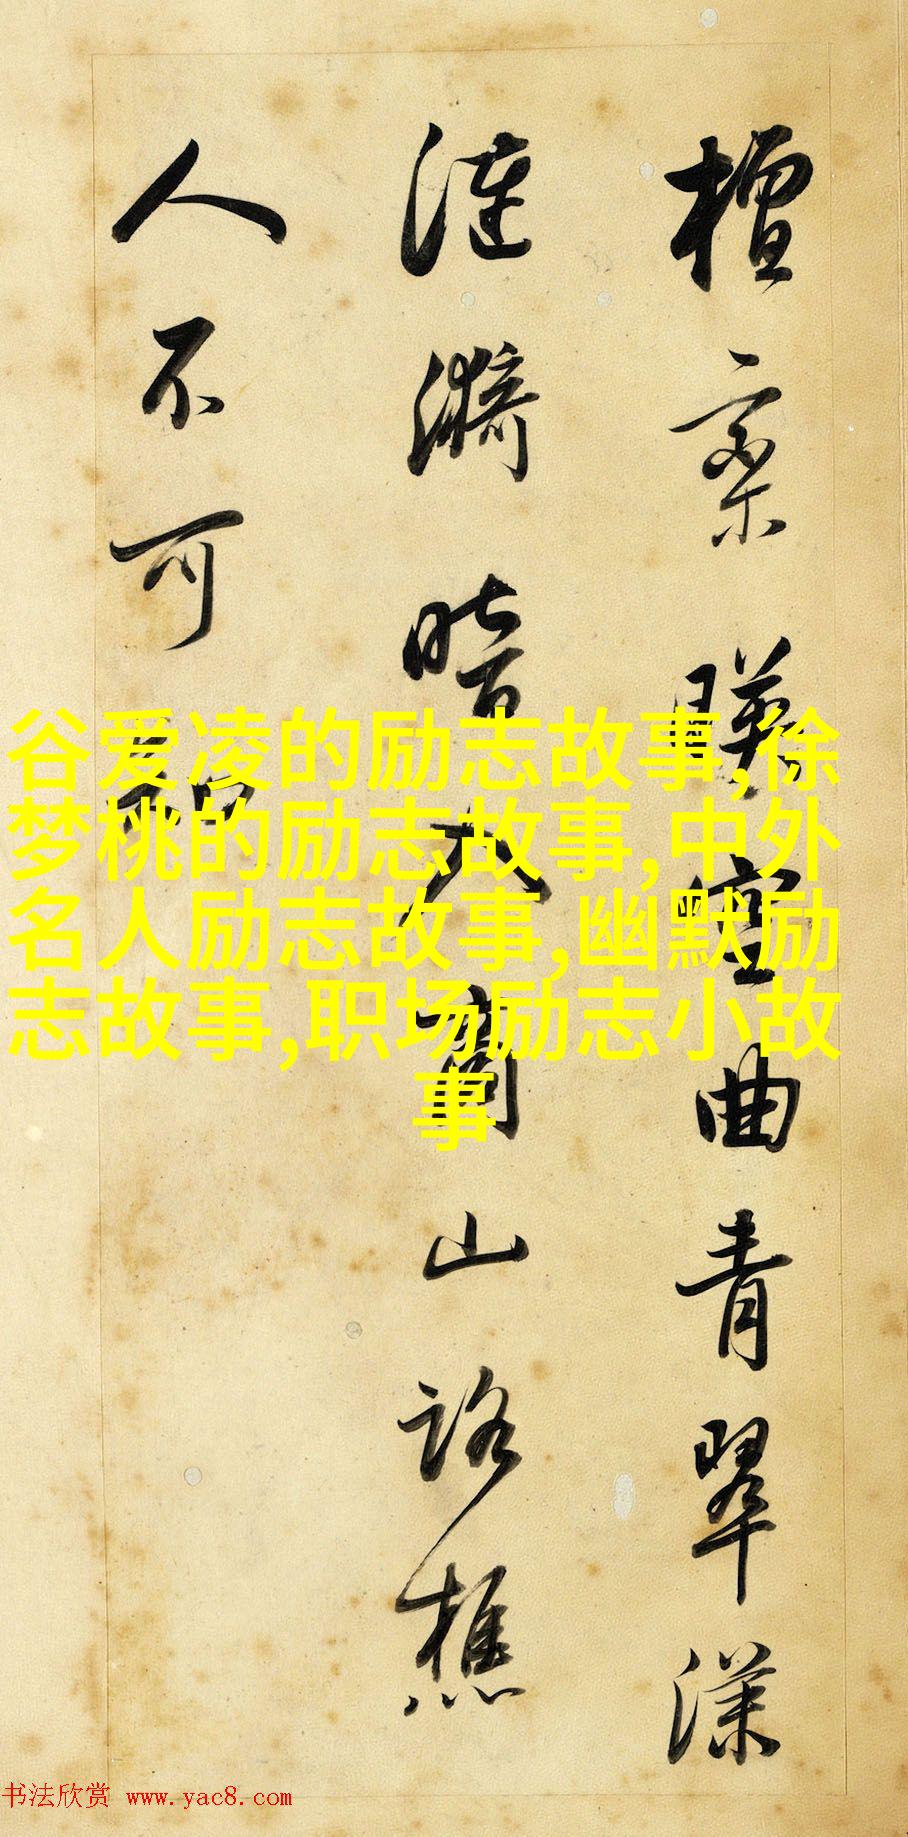 檀栾暎空曲青翠漾
漣漪暗入商山路樵
人不可知
谷爱凌的励志故事,徐
梦桃的励志故事,中外
名人励志故事,幽默励
志故事,职场励志小故
事
书法欣赏 www.yac8.com